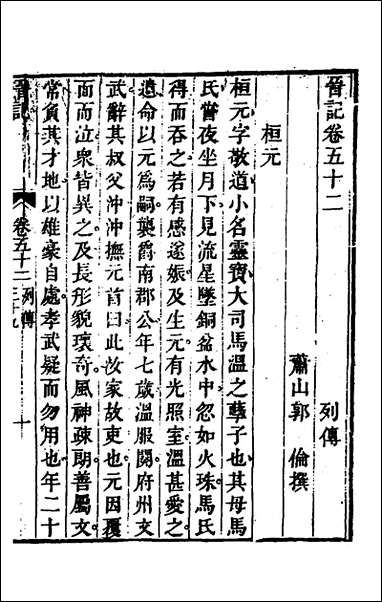 晉記卷五十二
列傳
蕭山郭　倫撰
桓元
桓元字敬道小名靈寶大司馬溫之孽子也其母馬
氏嘗夜坐月下見流星墜銅盆水中忽如火珠馬氏
得而吞之若有感遂娠及生元有光照室溫甚愛之
遺命以元為嗣襲爵南郡公年七歲溫服闋府州文
武辭其叔父沖沖撫元首曰此汝家故吏也元因覆
面而泣眾皆異之及長形貌瓌奇風神疎朗善屬文
常負其才地以雄豪自處孝武疑而勿用也年二十
晉記
卷五十二
列傳
三十九
一